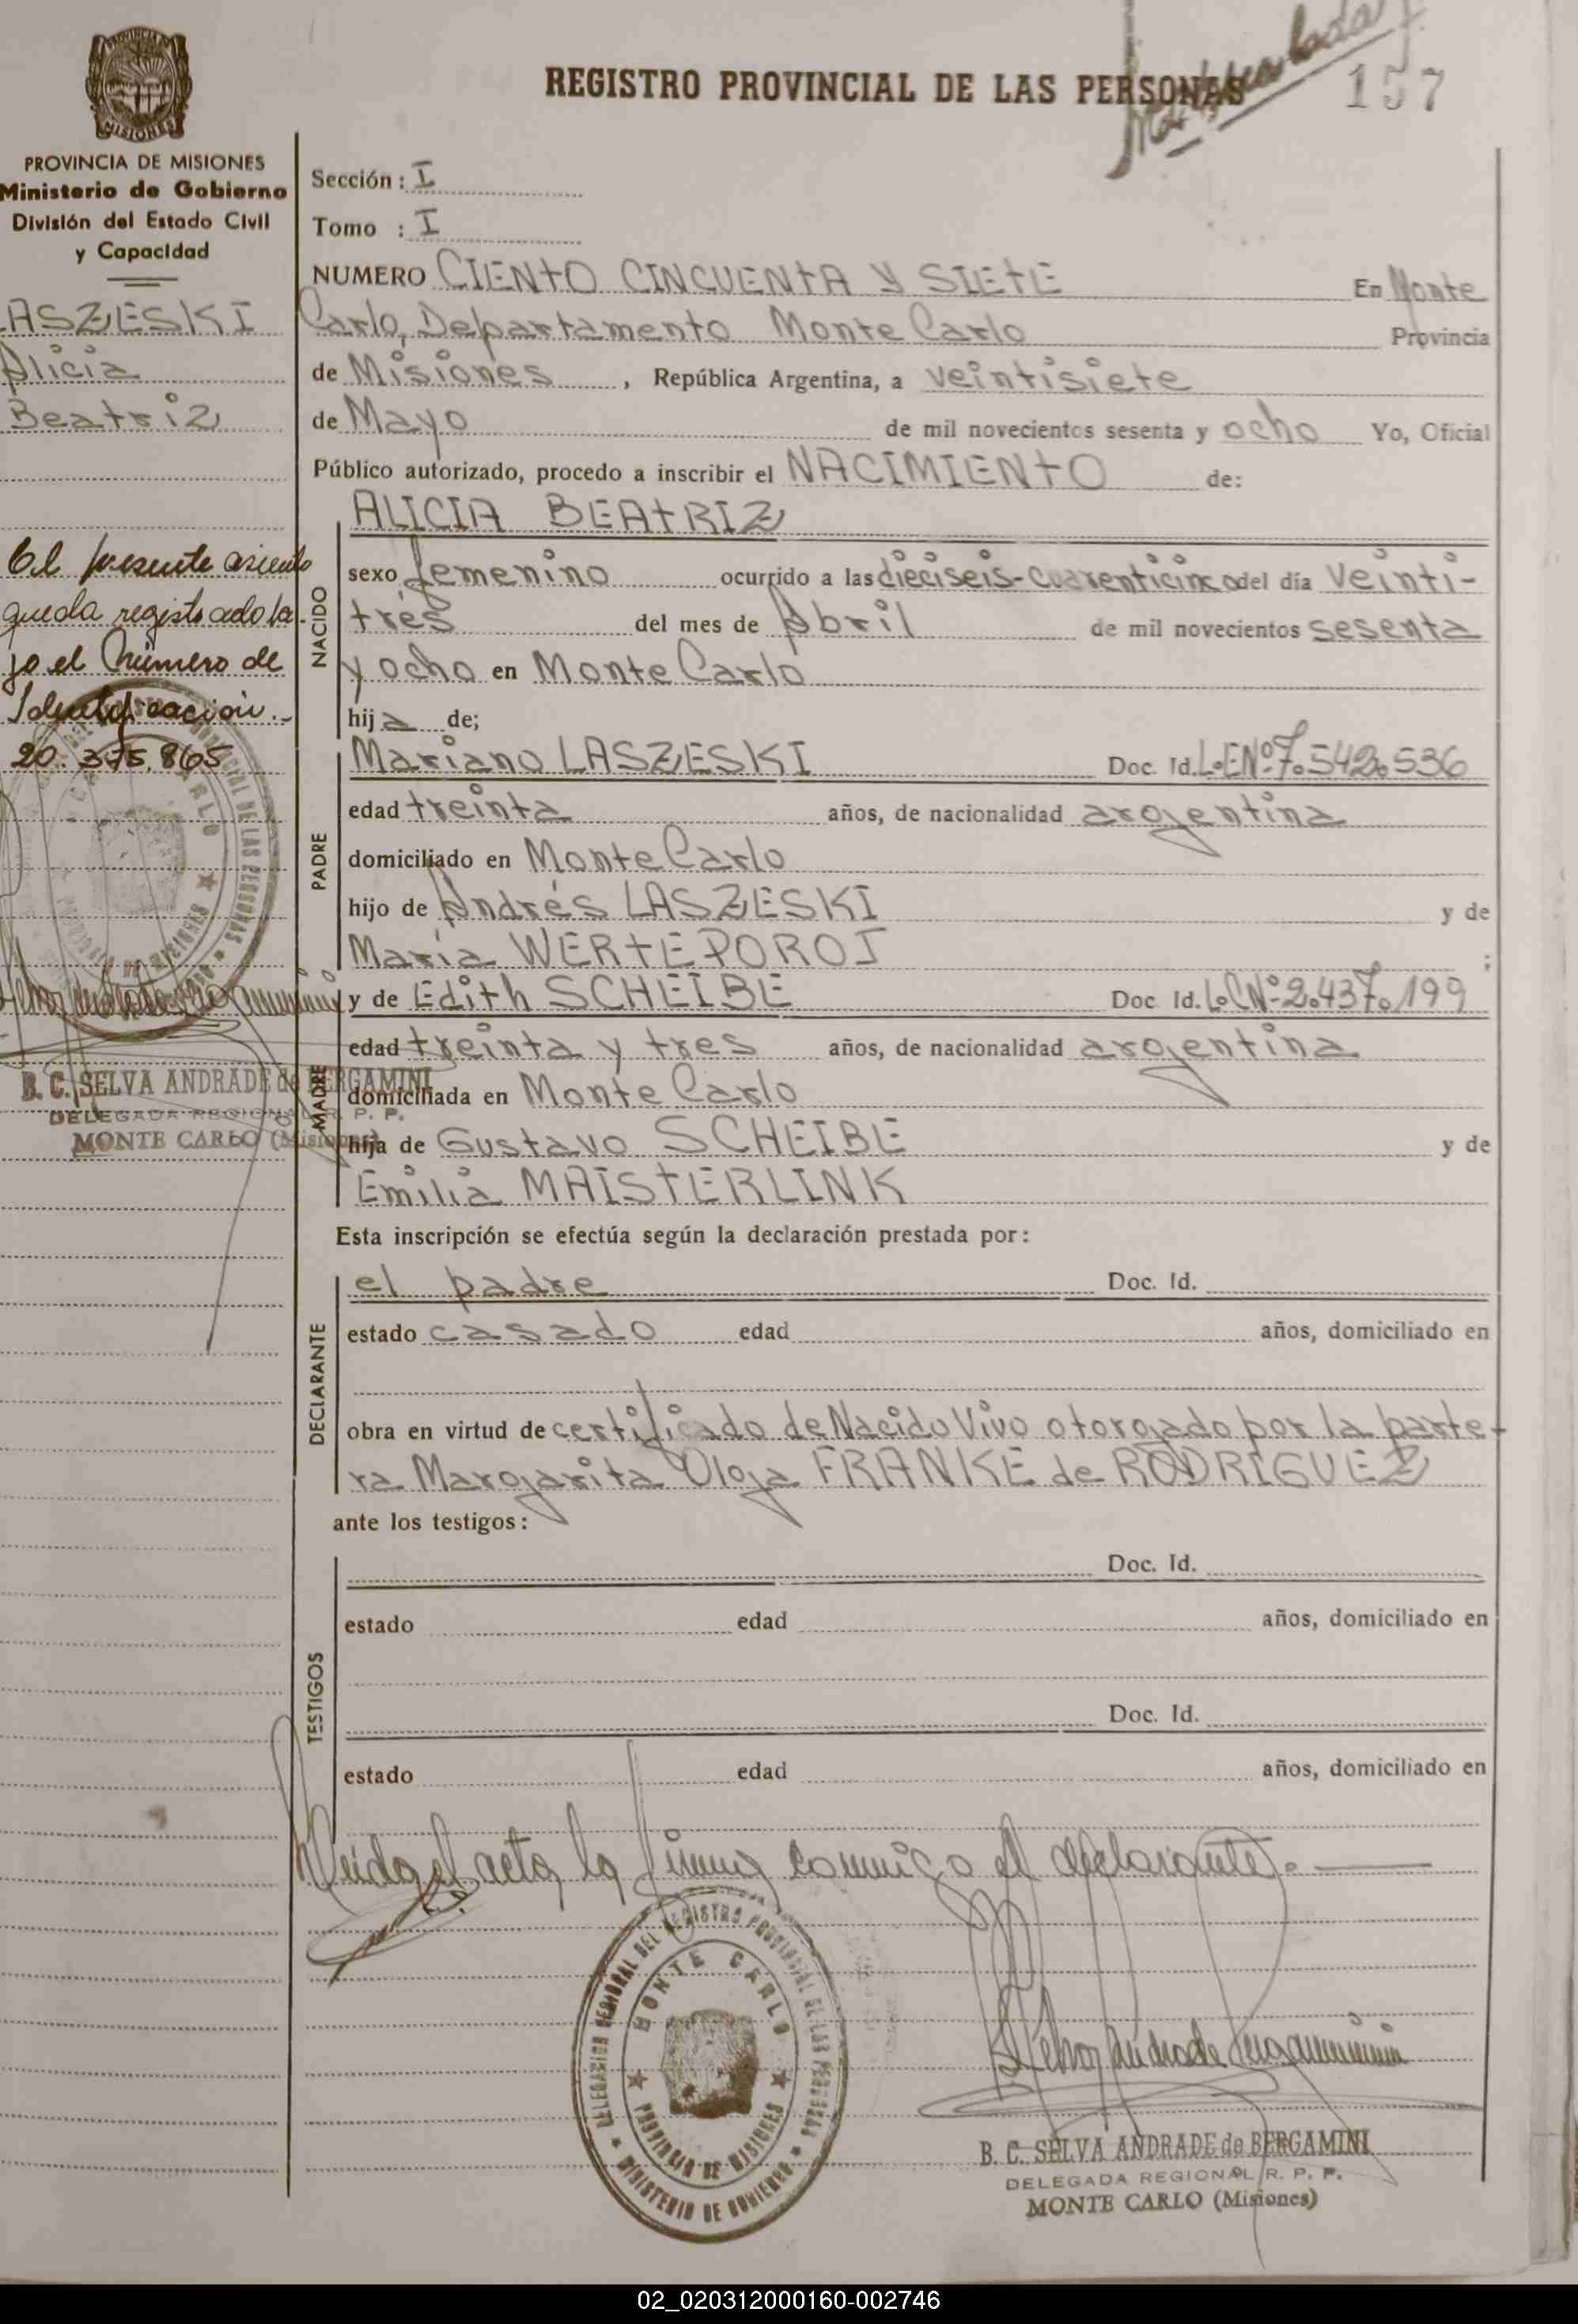 REGISTRO PROVINCIAL DE LAS PERSONAS
157
PROVINCIA DE MISIONES
Ministerio de Gobierno
División del Estado Civil
y Capacidad
LASZESKI
Alicia
Beatriz
El presente asiento
queda registrado ba-
jo el Número de
Identificación.-
20.375.865
B. C. SELVA ANDRADE de BERGAMINI
DELEGADA REGIONAL R. P. P.
MONTE CARLO (Misiones)
Sección: I
Tomo : I
NUMERO CIENTO CINCUENTA Y SIETE En Monte
Carlo, Departamento Monte Carlo Provincia
de Misiones, República Argentina, a veintisiete
de Mayo de mil novecientos sesenta y ocho Yo, Oficial
Público autorizado, procedo a inscribir el NACIMIENTO de:
NACIDO
ALICIA BEATRIZ
sexo femenino ocurrido a las dieciseis-cuarenticinco del día Veinti-
trés del mes de Abril de mil novecientos sesenta
y ocho en Monte Carlo
hija de;
PADRE
Mariano LASZESKI Doc. Id. L.E.Nº 7.542.536
edad treinta años, de nacionalidad argentina
domiciliado en Monte Carlo
hijo de Andrés LASZESKI y de
María WERTEPOROJ ;
MADRE
y de Edith SCHEIBE Doc Id. L.C.Nº 2.437.199
edad treinta y tres años, de nacionalidad argentina
domiciliada en Monte Carlo
hija de Gustavo SCHEIBE y de
Emilia MAISTERLINK
Esta inscripción se efectúa según la declaración prestada por:
DECLARANTE
el padre Doc. Id.
estado casado edad años, domiciliado en
obra en virtud de certificado de Nacido Vivo otorgado por la parte-
ra Margarita Olga FRANKE de RODRIGUEZ
ante los testigos:
TESTIGOS
Doc. Id.
estado edad años, domiciliado en
Doc. Id.
estado edad años, domiciliado en
Leida el acta, la firma conmigo el declarante.-
DELEGACION REGIONAL DEL REGISTRO PROVINCIAL DE LAS PERSONAS
MONTE CARLO
PROVINCIA DE MISIONES
MINISTERIO DE GOBIERNO
B. C. SELVA ANDRADE de BERGAMINI
DELEGADA REGIONAL R. P. P.
MONTE CARLO (Misiones)
02_020312000160-002746